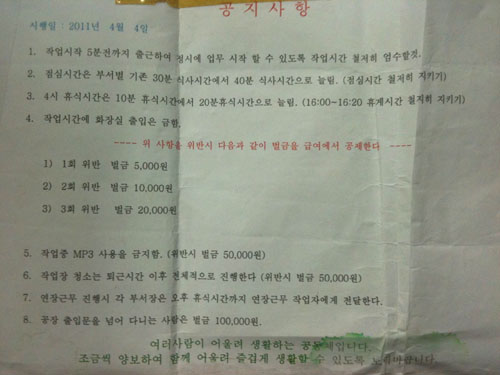 공지사항
시행일 : 2011년 4월 4일
1. 작업시작 5분전까지 출근하여 정시에 업무 시작 할 수 있도록 작업시간 철저히 엄수할것.
2. 점심시간은 부서별 기존 30분 식사시간에서 40분 식사시간으로 늘림. (점심시간 철저히 지키기)
3. 4시 휴식시간은 10분 휴식시간에서 20분휴식시간으로 늘림. (16:00~16:20 휴게시간 철저히 지키기)
4. 작업시간에 화장실 출입은 금함.
---- 위 사항을 위반시 다음과 같이 벌금을 급여에서 공제한다 ----
1) 1회 위반 벌금 5,000원
2) 2회 위반 벌금 10,000원
3) 3회 위반 벌금 20,000원
5. 작업중 MP3 사용을 금지함. (위반시 벌금 50,000원)
6. 작업장 청소는 퇴근시간 이후 전체적으로 진행한다 (위반시 벌금 50,000원)
7. 연장근무 진행시 각 부서장은 오후 휴식시간까지 연장근무 작업자에게 전달한다.
8. 공장 출입문을 넘어 다니는 사람은 벌금 100,000원.
여러사람이 어울려 생활하는 공동체입니다.
조금씩 양보하여 함께 어울려 즐겁게 생활할 수 있도록 노력바랍니다.